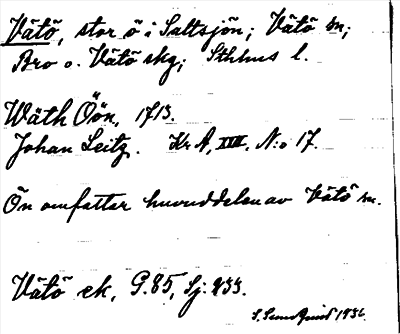 Vätö, stor ö i Saltsjön; Vätö sn;
Bro o. Vätö skg; Sthlms l.
Wäth Öön, 1713.
Johan Leitz. Kr A, XIII, N:o 17.
Ön omfattar huvuddelen av Vätö sn.
Vätö ek, G.85, Sj: 233.
S. Sundquist 1936.